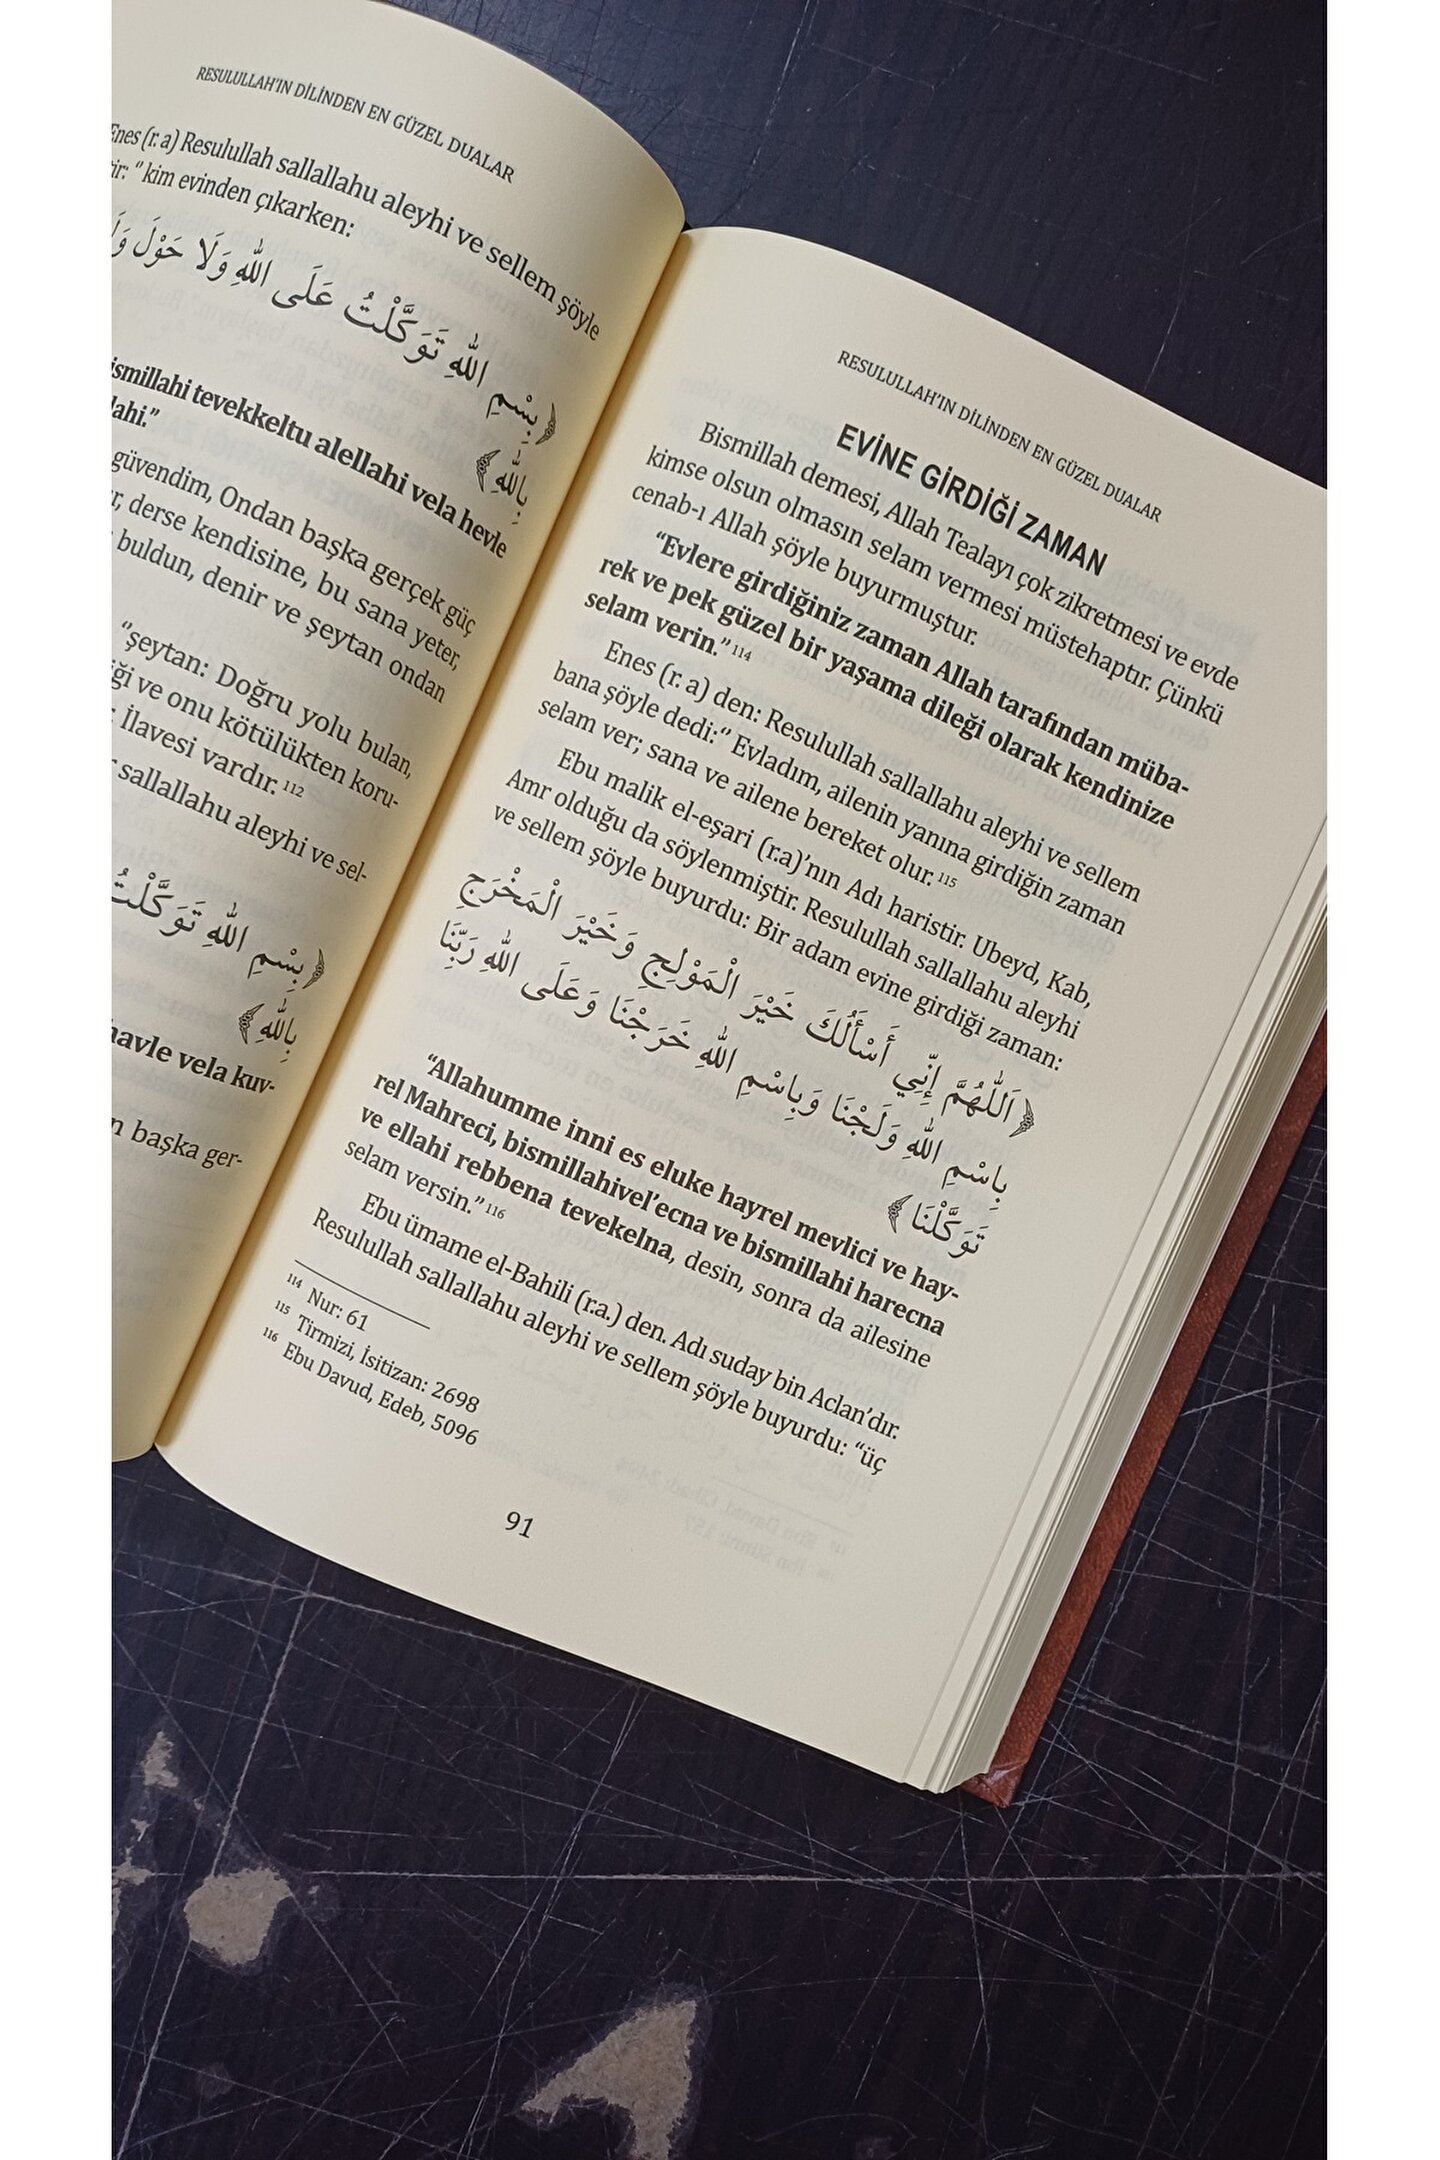 RESULULLAH'IN DİLİNDEN EN GÜZEL DUALAR
Enes (r. a) Resulullah sallallahu aleyhi ve sellem şöyle
"kim evinden çıkarken:
﴿بِسْمِ اللهِ تَوَكَّلْتُ عَلَى اللهِ وَلَا حَوْلَ
بِاللهِ﴾
ismillahi tevekkeltu alellahi vela hevle
lahi."
güvendim, Ondan başka gerçek güç
derse kendisine, bu sana yeter,
buldun, denir ve şeytan ondan
"şeytan: Doğru yolu bulan,
ve onu kötülükten koru-
İlavesi vardır. 112
sallallahu aleyhi ve sel-
﴿بِسْمِ اللهِ تَوَكَّلْتُ
بِاللهِ﴾
havle vela kuv-
başka ger-
RESULULLAH'IN DİLİNDEN EN GÜZEL DUALAR
EVİNE GİRDİĞİ ZAMAN
Bismillah demesi, Allah Tealayı çok zikretmesi ve evde
kimse olsun olmasın selam vermesi müstehaptır. Çünkü
cenab-ı Allah şöyle buyurmuştur.
"Evlere girdiğiniz zaman Allah tarafından müba-
rek ve pek güzel bir yaşama dileği olarak kendinize
selam verin." 114
Enes (r. a) den: Resulullah sallallahu aleyhi ve sellem
bana şöyle dedi:" Evladım, ailenin yanına girdiğin zaman
selam ver; sana ve ailene bereket olur. 115
Ebu malik el-eşari (r.a)'nın Adı haristir. Ubeyd, Kab,
Amr olduğu da söylenmiştir. Resulullah sallallahu aleyhi
ve sellem şöyle buyurdu: Bir adam evine girdiği zaman:
﴿اَللّٰهُمَّ إِنِّي أَسْأَلُكَ خَيْرَ الْمَوْلِجِ وَخَيْرَ الْمَخْرَجِ
بِاسْمِ اللهِ وَلَجْنَا وَبِاسْمِ اللهِ خَرَجْنَا وَعَلَى اللهِ رَبِّنَا
تَوَكَّلْنَا﴾
"Allahumme inni es eluke hayrel mevlici ve hay-
rel Mahreci, bismillahivel'ecna ve bismillahi harecna
ve ellahi rebbena tevekelna, desin, sonra da ailesine
selam versin." 116
Ebu ümame el-Bahili (r.a.) den. Adı suday bin Aclan'dır.
Resulullah sallallahu aleyhi ve sellem şöyle buyurdu: "üç
114 Nur: 61
115 Tirmizi, İsitizan: 2698
116 Ebu Davud, Edeb, 5096
91